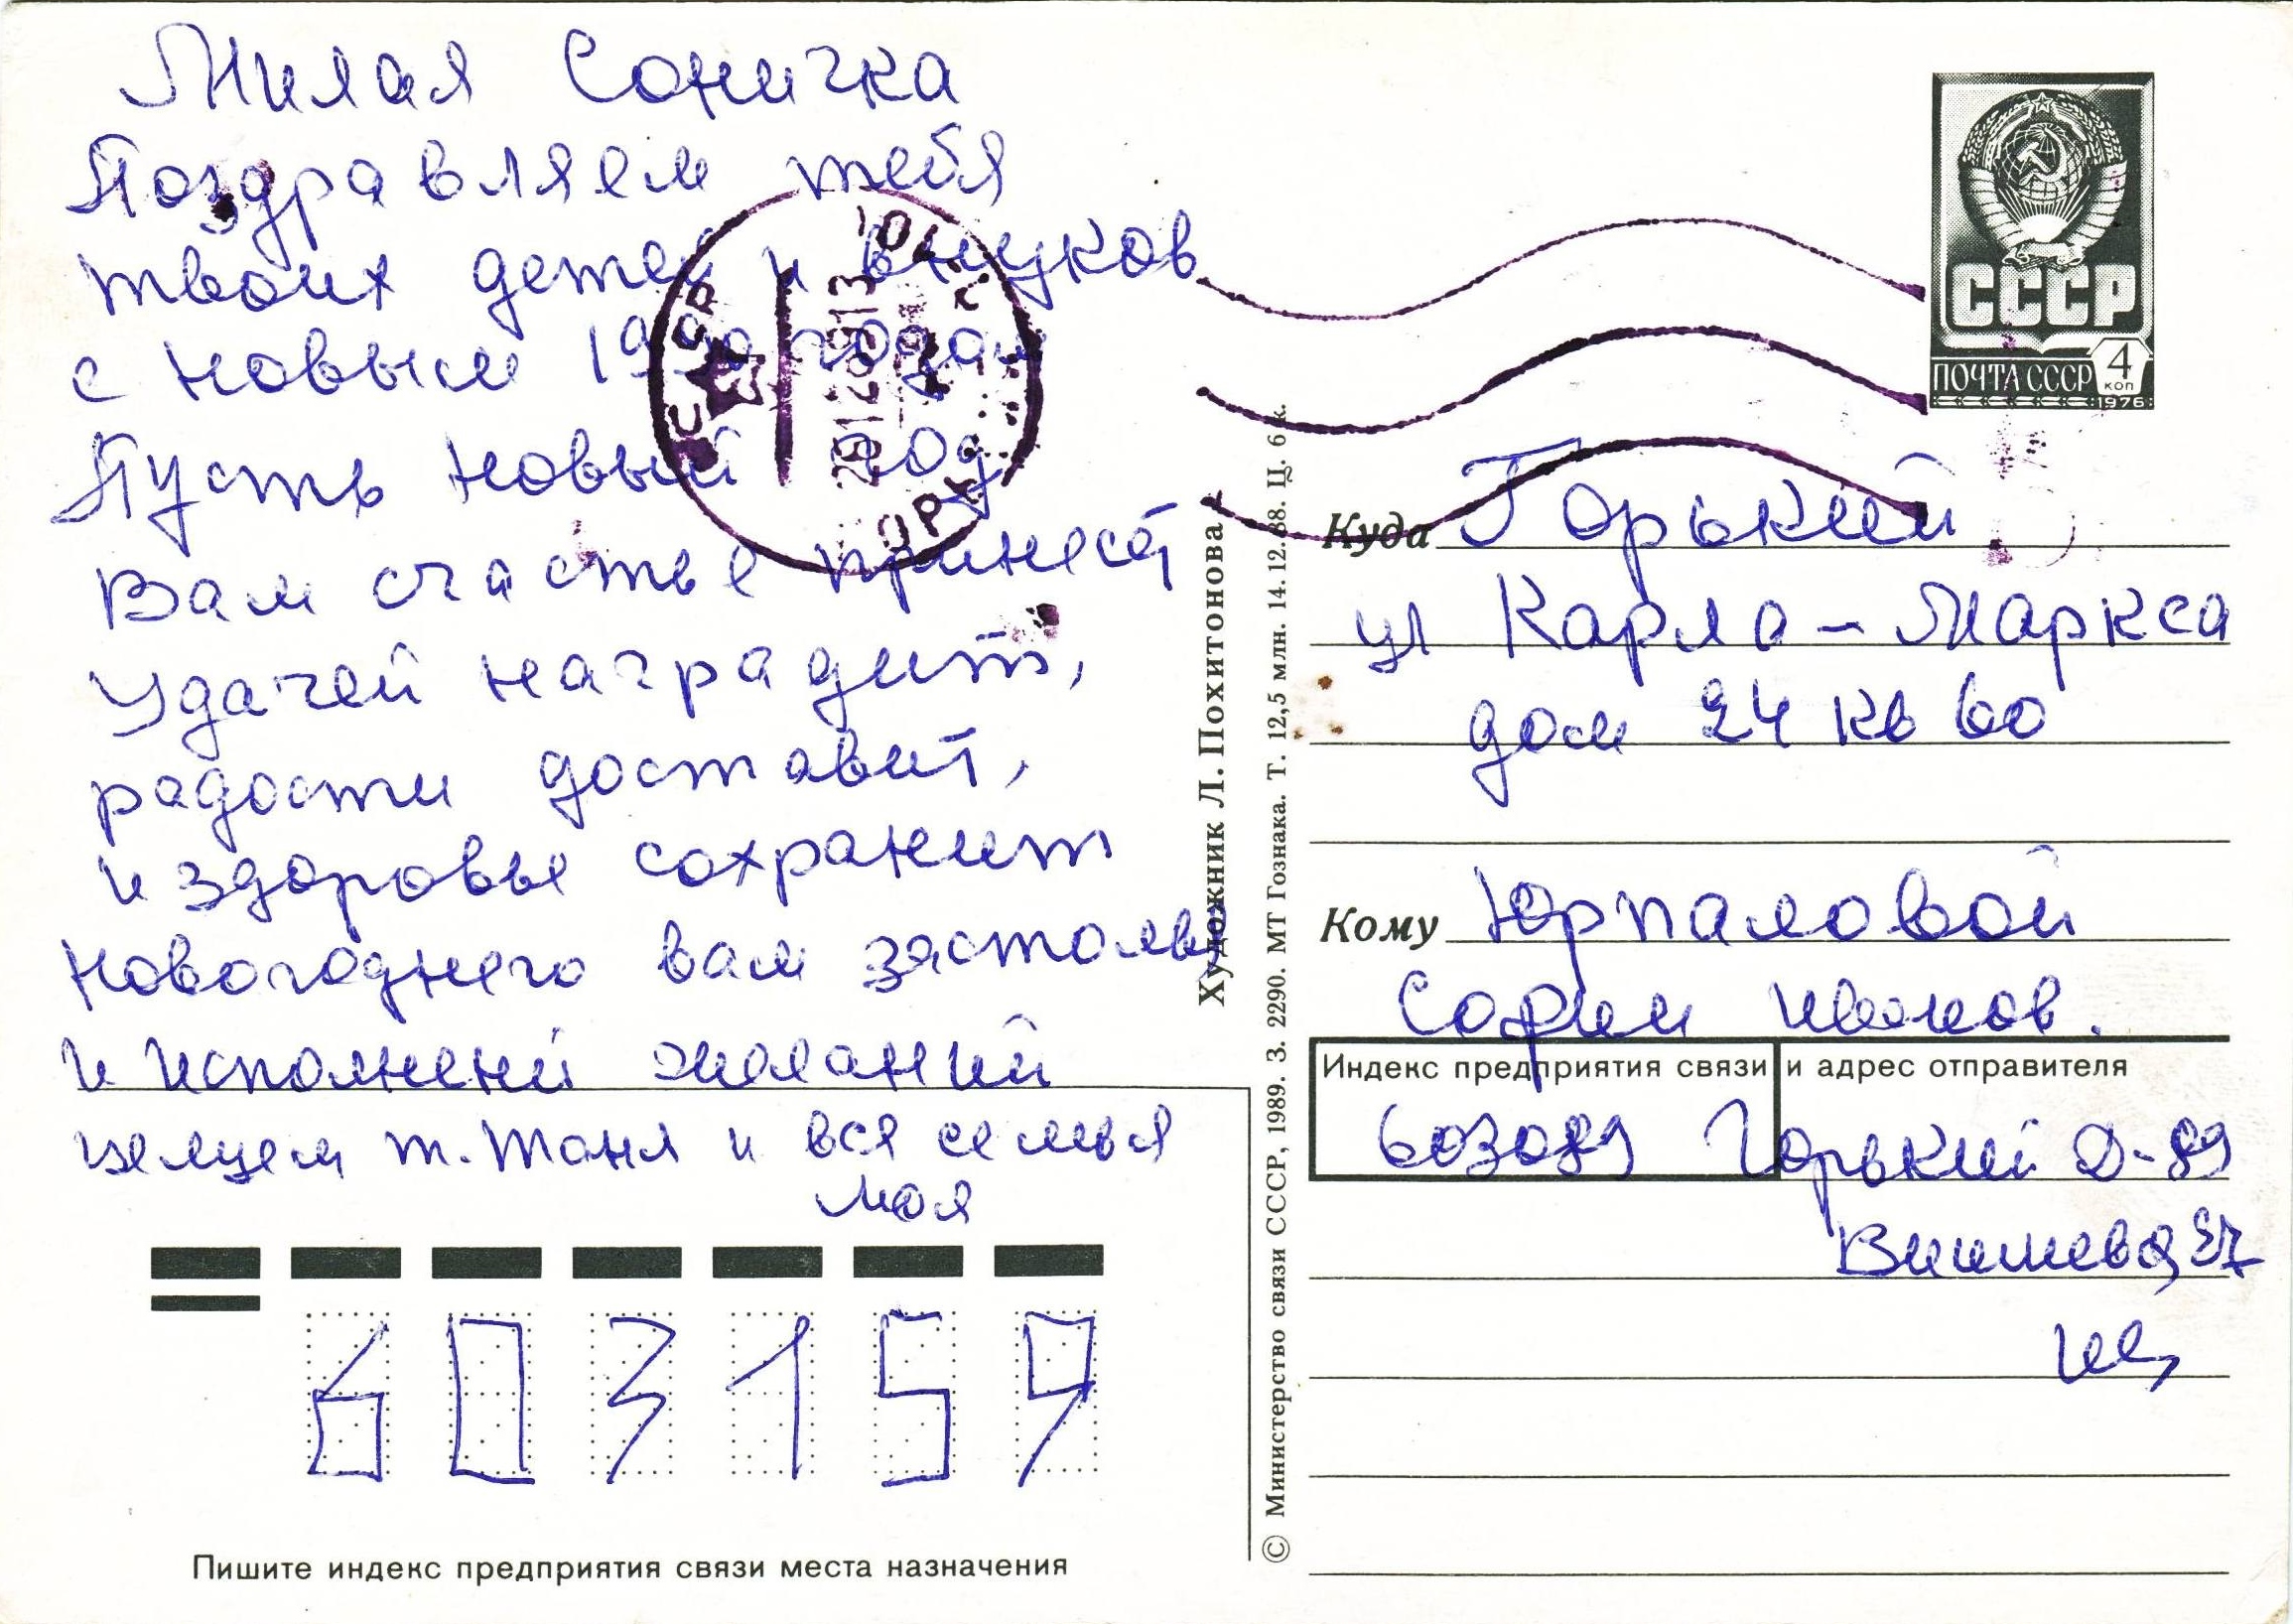 Милая Соничка
Поздравляем тебя
твоих детей и внуков
с новым 1990 годом
Пусть новый год
Вам счастье принесёт
Удачей наградит,
радости доставит,
и здоровье сохранит
Новогоднего вам застолья
и исполнений желаний
целуем т. Таня и вся семья
моя
Пишите индекс предприятия связи места назначения
603159
Художник Л. Похитонова
© Министерство связи СССР, 1989. З. 2290. МТ Гознака. Т. 12,5 млн. 14.12.88. Ц. 6 к.
СССР
ПОЧТА СССР 4
коп
1976
Куда Горький
ул Карла-Маркса
дом 24 кв 60
Кому Юрпаловой
Софии Иванов.
Индекс предприятия связи и адрес отправителя
603089 Горький Д-89